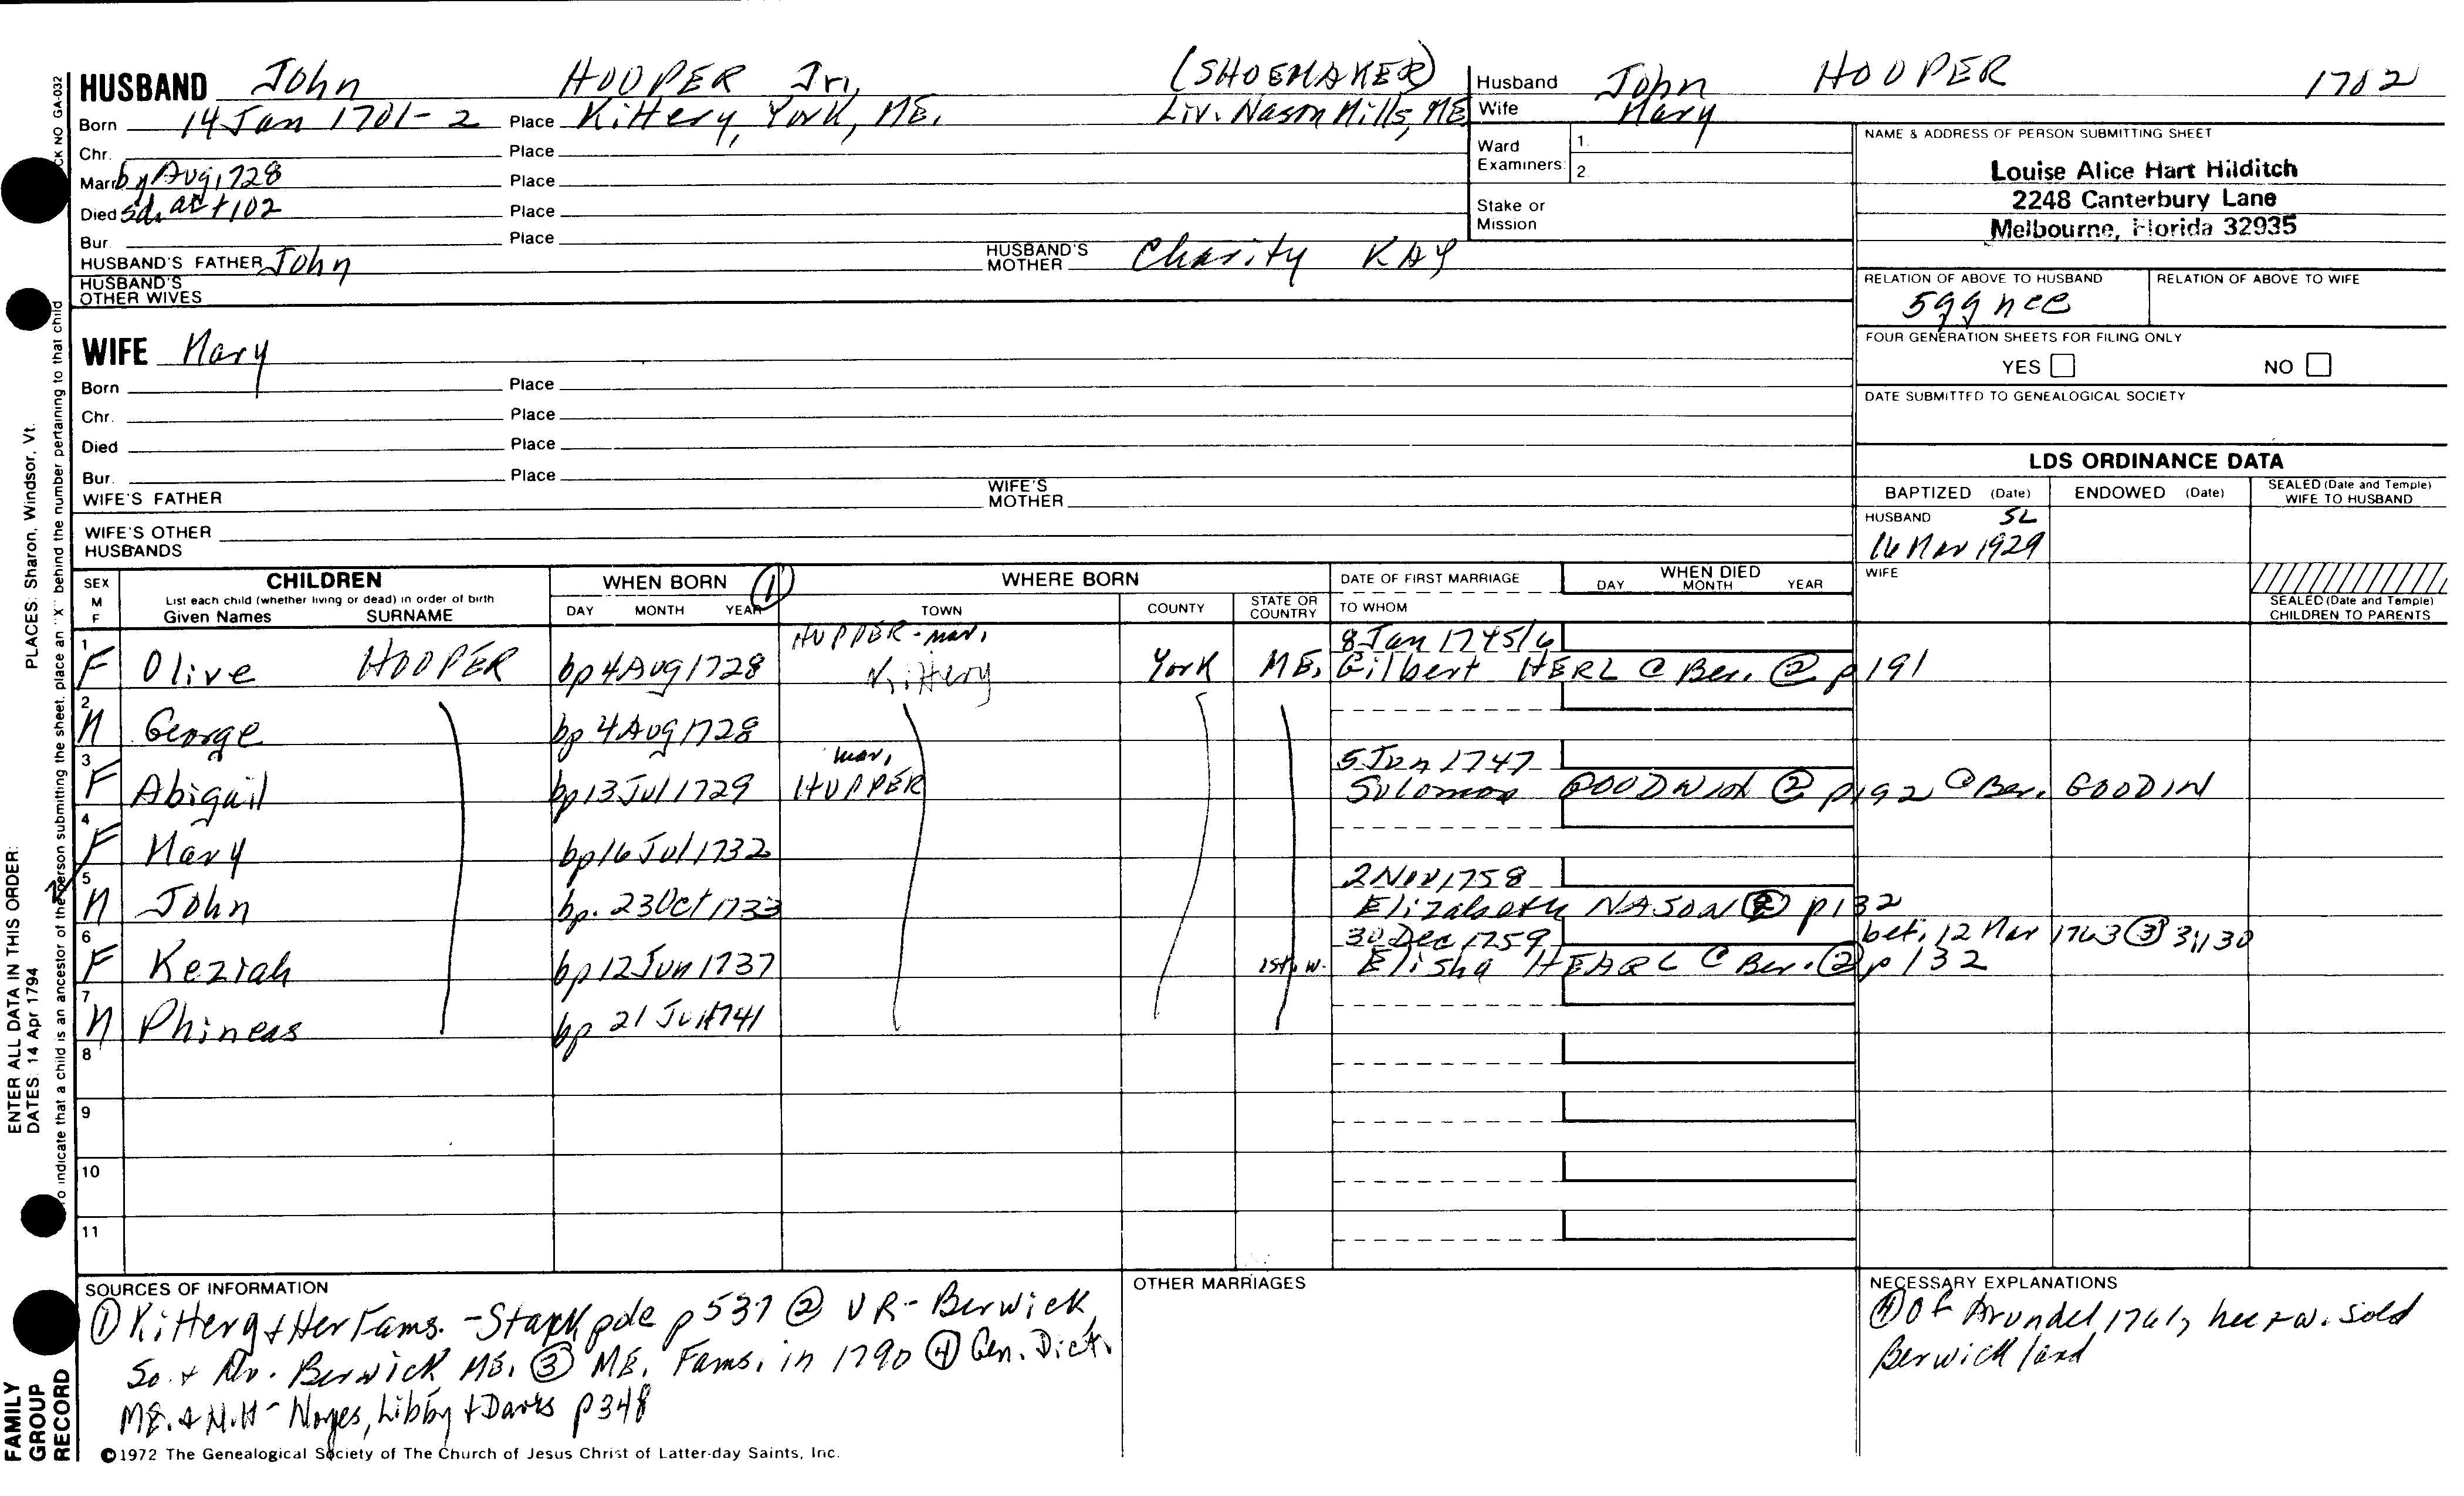 HUSBAND John HOOPER Jr. (SHOEMAKER) Husband John HOOPER 1702
Born 14 Jan 1701-2 Place Kittery, York, ME. Liv. Nason Mills, ME Wife Mary
Chr. Place
Ward Examiners: 1. 2.
Marr. by Aug 1728 Place
Died sd. at +102 Place
Stake or Mission
Bur. Place
HUSBAND'S FATHER John HUSBAND'S MOTHER Charity KAY
HUSBAND'S OTHER WIVES
NAME & ADDRESS OF PERSON SUBMITTING SHEET
Louise Alice Hart Hilditch
2248 Canterbury Lane
Melbourne, Florida 32935
RELATION OF ABOVE TO HUSBAND RELATION OF ABOVE TO WIFE
5ggnce
FOUR GENERATION SHEETS FOR FILING ONLY
YES NO
DATE SUBMITTED TO GENEALOGICAL SOCIETY
WIFE Mary
Born Place
Chr. Place
Died Place
Bur. Place
WIFE'S FATHER WIFE'S MOTHER
WIFE'S OTHER HUSBANDS
LDS ORDINANCE DATA
BAPTIZED (Date) ENDOWED (Date) SEALED (Date and Temple) WIFE TO HUSBAND
HUSBAND SL
16 Mar 1929
WIFE
SEALED (Date and Temple) CHILDREN TO PARENTS
SEX M F
CHILDREN
List each child (whether living or dead) in order of birth
Given Names SURNAME
WHEN BORN ①
DAY MONTH YEAR
WHERE BORN
TOWN COUNTY STATE OR COUNTRY
DATE OF FIRST MARRIAGE
TO WHOM
WHEN DIED
DAY MONTH YEAR
HUPPER-mar. 8 Jan 1745/6
1 F Olive HOOPER bp 4 Aug 1728 Kittery York ME. Gilbert HERL @ Ber. ② p191
2 M George bp 4 Aug 1728
mar. 5 Jan 1747
3 F Abigail bp 13 Jul 1729 HUPPER Solomon GOODWIN ② p192 @ Ber. GOODIN
4 F Mary bp 16 Jul 1732
2 Nov 1758
5 M John bp. 23 Oct 1733 Elizabeth NASON ② p132
30 Dec 1759 bef. 12 Mar 1763 ③ 31,30
6 F Keziah bp 12 Jun 1737 1st. w. Elisha HEARL @ Ber. ② p132
7 M Phineas bp 21 Jul 1741
8
9
10
11
SOURCES OF INFORMATION
① Kittery & Her Fams. - Stackpole p537 ② VR - Berwick,
So. & No. Berwick ME. ③ ME. Fams. in 1790 ④ Gen. Dict.
ME. & N.H - Noyes, Libby & Davis p348
OTHER MARRIAGES
NECESSARY EXPLANATIONS
④ Of Arundel 1761, he & w. sold
Berwick land
©1972 The Genealogical Society of The Church of Jesus Christ of Latter-day Saints, Inc.
FAMILY GROUP RECORD
ENTER ALL DATA IN THIS ORDER:
DATES: 14 Apr 1794
PLACES: Sharon, Windsor, Vt.
To indicate that a child is an ancestor of the person submitting the sheet, place an "X" behind the number pertaining to that child
CK NO GA-032